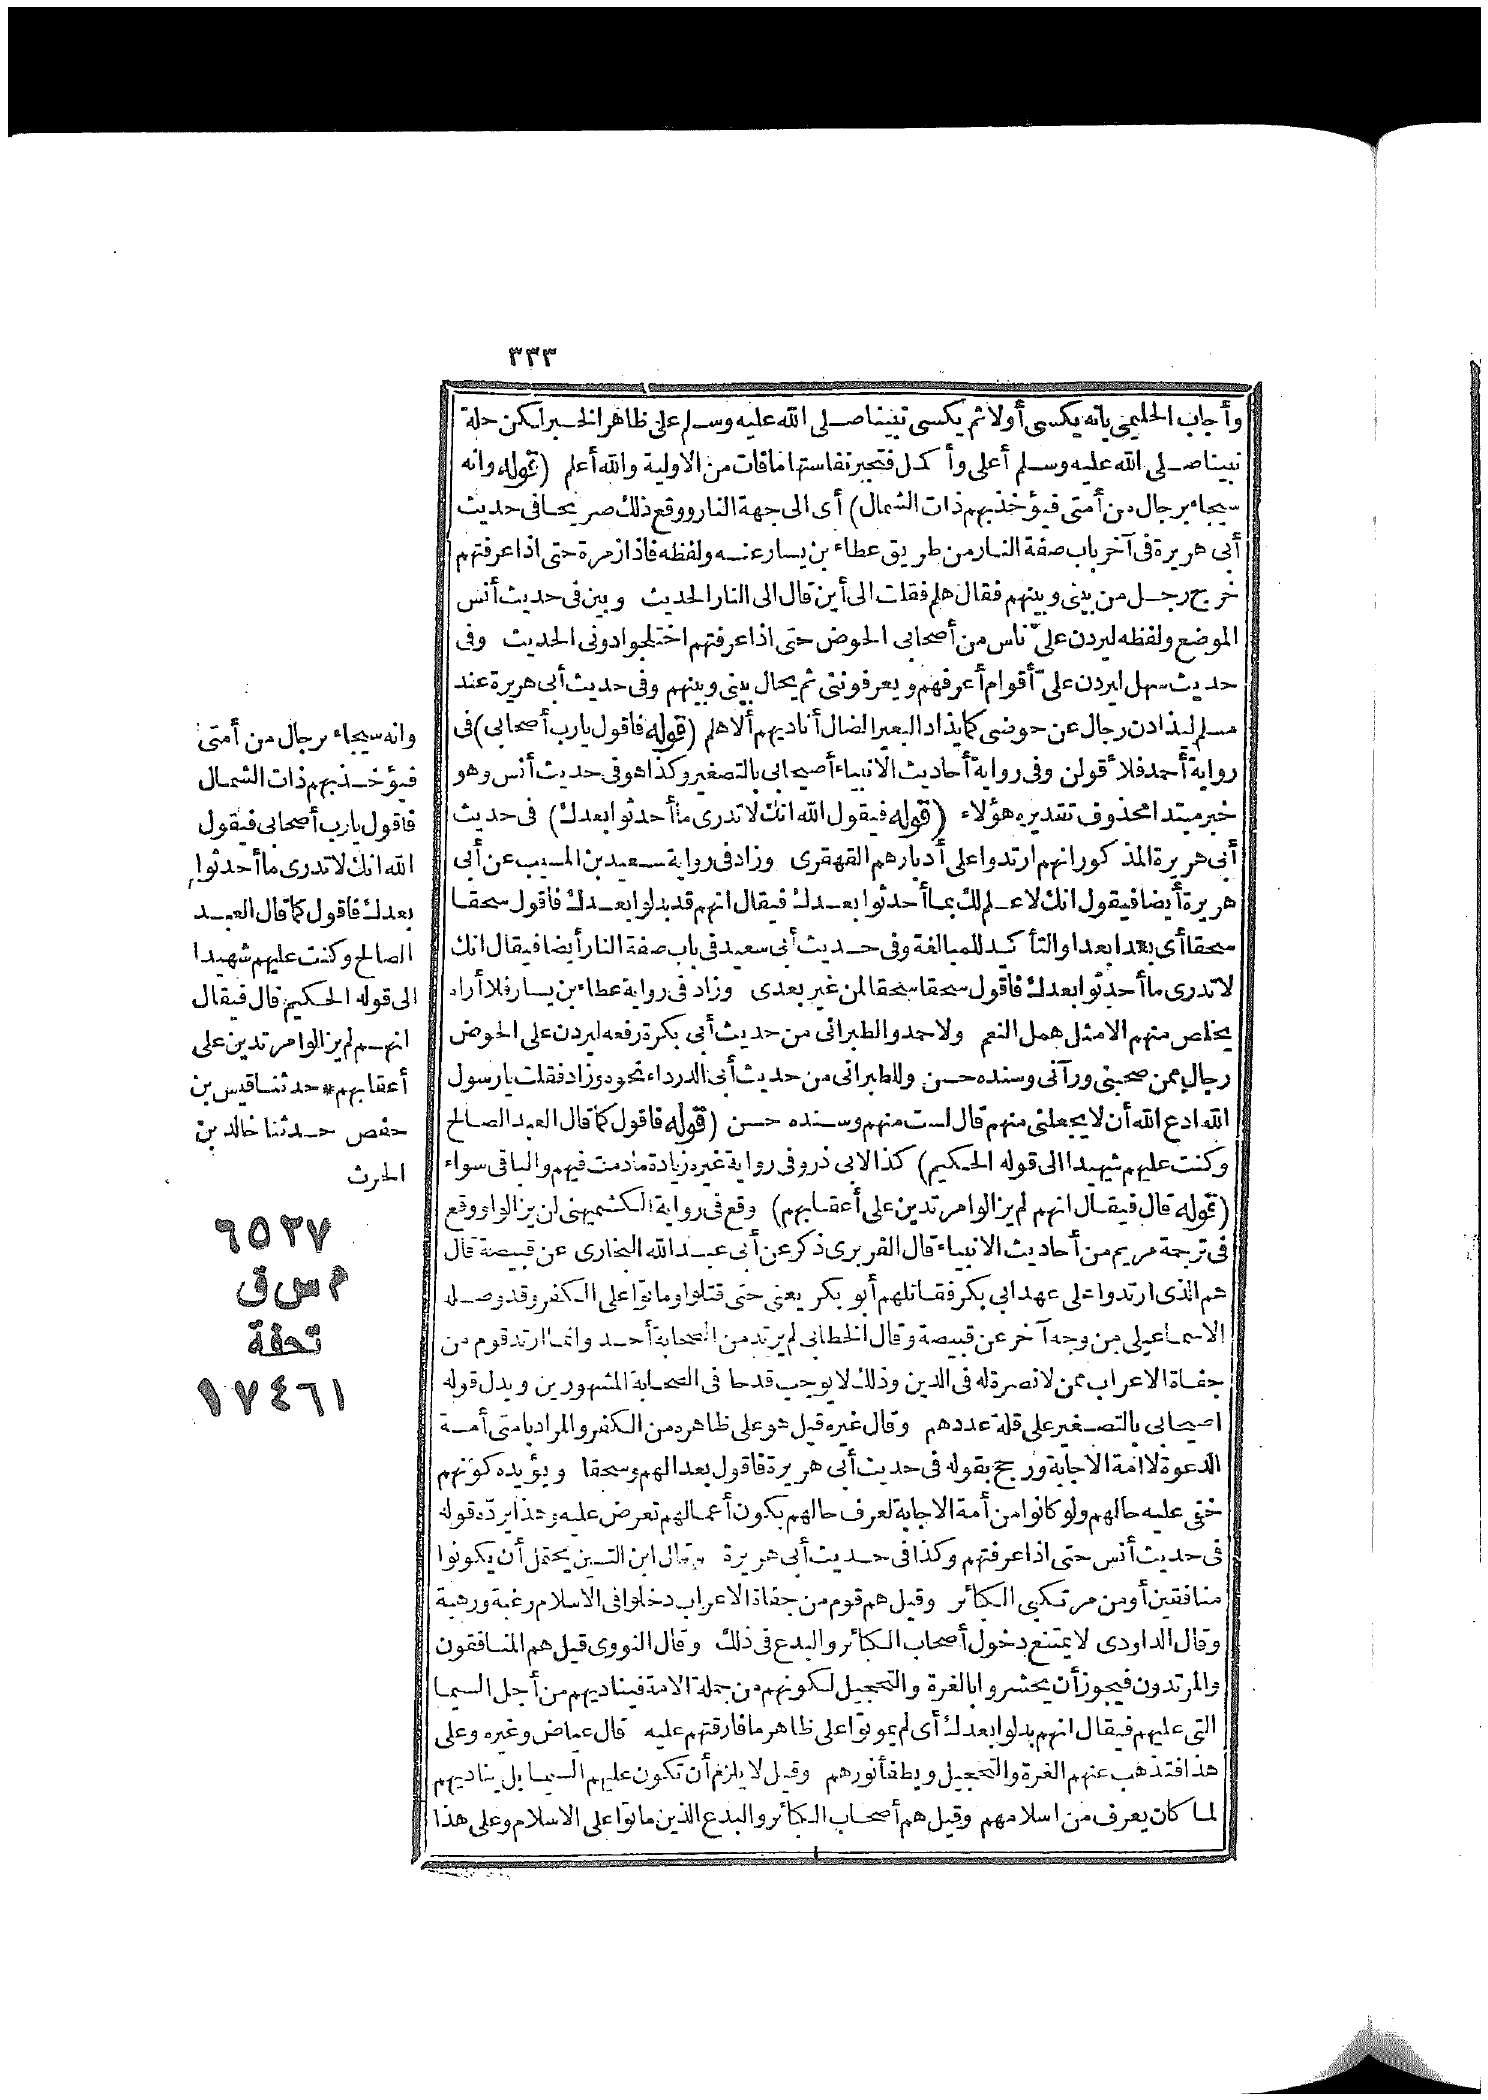 ٣٣٣
وأجاب الحليمى بانه يكسى أولا ثم يكسى نبينا صلى الله عليه وسلم على ظاهر الخبر لكن حلة
نبينا صلى الله عليه وسلم أعلى وأكمل فتجبر نفاستها ما فات من الاولية والله أعلم (قوله وانه
سيجاء برجال من أمتى فيؤخذ بهم ذات الشمال) أى الى جهة النار ووقع ذلك صريحا فى حديث
أبى هريرة فى آخر باب صفة النار من طريق عطاء بن يسار عنه ولفظه فاذا زمرة حتى اذا عرفتهم
خرج رجل من بينى وبينهم فقال هلم فقلت الى أين قال الى النار الحديث وبين فى حديث أنس
الموضع ولفظه ليردن علىّ ناس من أصحابى الحوض حتى اذا عرفتهم اختلجوا دونى الحديث وفى
حديث سهل ليردن علىّ أقوام أعرفهم ويعرفوننى ثم يحال بينى وبينهم وفى حديث أبى هريرة عند
مسلم ليذادن رجال عن حوضى كما يذاد البعير الضال أناديهم ألا هلم (قوله فاقول يارب أصحابى) فى
رواية أحمد فلاٴقولن وفى رواية أحاديث الانبياء أصيحابى بالتصغير وكذا هو فى حديث أنس وهو
خبر مبتدا محذوف تقديره هؤلاء (قوله فيقول الله انك لاتدرى ما أحدثوا بعدك) فى حديث
أبى هريرة المذكور انهم ارتدوا على أدبارهم القهقرى وزاد فى رواية سعيد بن المسيب عن أبى
هريرة أيضا فيقول انك لاعلم لك بما أحدثوا بعدك فيقال انهم قد بدلوا بعدك فاقول سحقا
سحقا أى بعدا بعدا والتأكيد للمبالغة وفى حديث أبى سعيد فى باب صفة النار أيضا فيقال انك
لاتدرى ما أحدثوا بعدك فاقول سحقا سحقا لمن غير بعدى وزاد فى رواية عطاء بن يسار فلا أراه
يخلص منهم الا مثل همل النعم ولاحمد والطبرانى من حديث أبى بكرة رفعه ليردن على الحوض
رجال ممن صحبنى ورآنى وسنده حسن وللطبرانى من حديث أبى الدرداء نحوه وزاد فقلت يارسول
الله ادع الله أن لا يجعلنى منهم قال لست منهم وسنده حسن (قوله فاقول كما قال العبد الصالح
وكنت عليهم شهيدا الى قوله الحكيم) كذا لابى ذر وفى رواية غيره زيادة مادمت فيهم والباقى سواء
(قوله قال فيقال انهم لم يزالوا مرتدين على أعقابهم) وقع فى رواية الكشميهنى لن يزالوا ووقع
فى ترجمة مريم من أحاديث الانبياء قال الفربرى ذكر عن أبى عبد الله البخارى عن قبيصة قال
هم الذى ارتدوا على عهد ابى بكر فقاتلهم أبو بكر يعنى حتى قتلوا وماتوا على الكفر وقد وصله
الاسماعيلى من وجه آخر عن قبيصة وقال الخطابى لم يرتد من الصحابة أحد وانما ارتد قوم من
جفاة الاعراب ممن لانصرة له فى الدين وذلك لا يوجب قدحا فى الصحابة المشهورين ويدل قوله
اصيحابى بالتصغير على قلة عددهم وقال غيره قيل هو على ظاهره من الكفر والمراد بامتى أمة
الدعوة لا امة الاجابة ورجح بقوله فى حديث أبى هريرة فاقول بعدا لهم وسحقا ويؤيده كونهم
خفى عليه حالهم ولو كانوا من أمة الاجابة لعرف حالهم بكون أعمالهم تعرض عليه وهذا يرده قوله
فى حديث أنس حتى اذا عرفتهم وكذا فى حديث أبى هريرة وقال ابن التين يحتمل أن يكونوا
منافقين أو من مرتكبى الكبائر وقيل هم قوم من جفاة الاعراب دخلوا فى الاسلام رغبة ورهبة
وقال الداودى لا يمتنع دخول أصحاب الكبائر والبدع فى ذلك وقال النووى قيل هم المنافقون
والمرتدون فيجوز أن يحشروا بالغرة والتحجيل لكونهم من جملة الامة فيناديهم من أجل السيما
التى عليهم فيقال انهم بدلوا بعدك أى لم يموتوا على ظاهر ما فارقتهم عليه قال عياض وغيره وعلى
هذا فتذهب عنهم الغرة والتحجيل ويطفأ نورهم وقيل لا يلزم أن تكون عليهم السيما بل يناديهم
لما كان يعرف من اسلامهم وقيل هم أصحاب الكبائر والبدع الذين ماتوا على الاسلام وعلى هذا
وانه سيجاء برجال من أمتى
فيؤخذ بهم ذات الشمال
فاقول يارب أصحابى فيقول
الله انك لاتدرى ما أحدثوا
بعدك فاقول كما قال العبد
الصالح وكنت عليهم شهيدا
الى قوله الحكيم قال فيقال
انهم لم يزالوا مرتدين على
أعقابهم * حدثنا قيس بن
حفص حدثنا خالد بن
الحرث
٦٥٢٧
م س ق
تحفة
١٧٤٦١